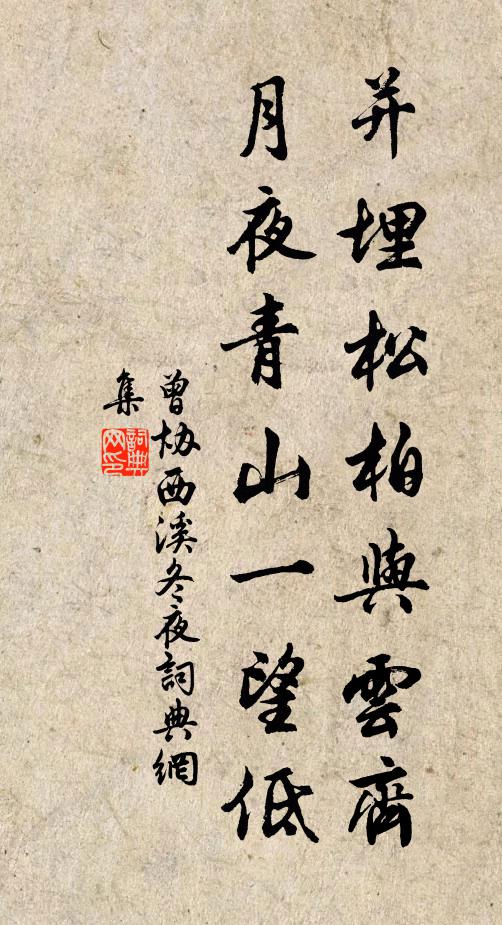 并埋松柏與雲齊
月夜青山一望低
曾協西溪冬夜詞典網
集
詞典
网印